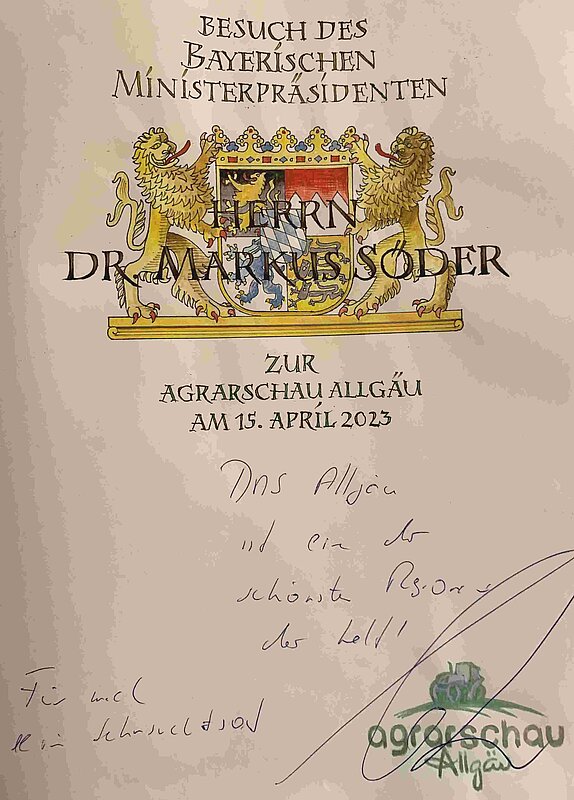 BESUCH DES
BAYERISCHEN
MINISTERPRÄSIDENTEN
HERRN
DR. MARKUS SÖDER
ZUR
AGRARSCHAU ALLGÄU
AM 15. APRIL 2023
Das Allgäu
ist eine der
schönsten Regionen
der Welt!
Für mich
ein Sehnsuchtsort
agrarschau
Allgäu